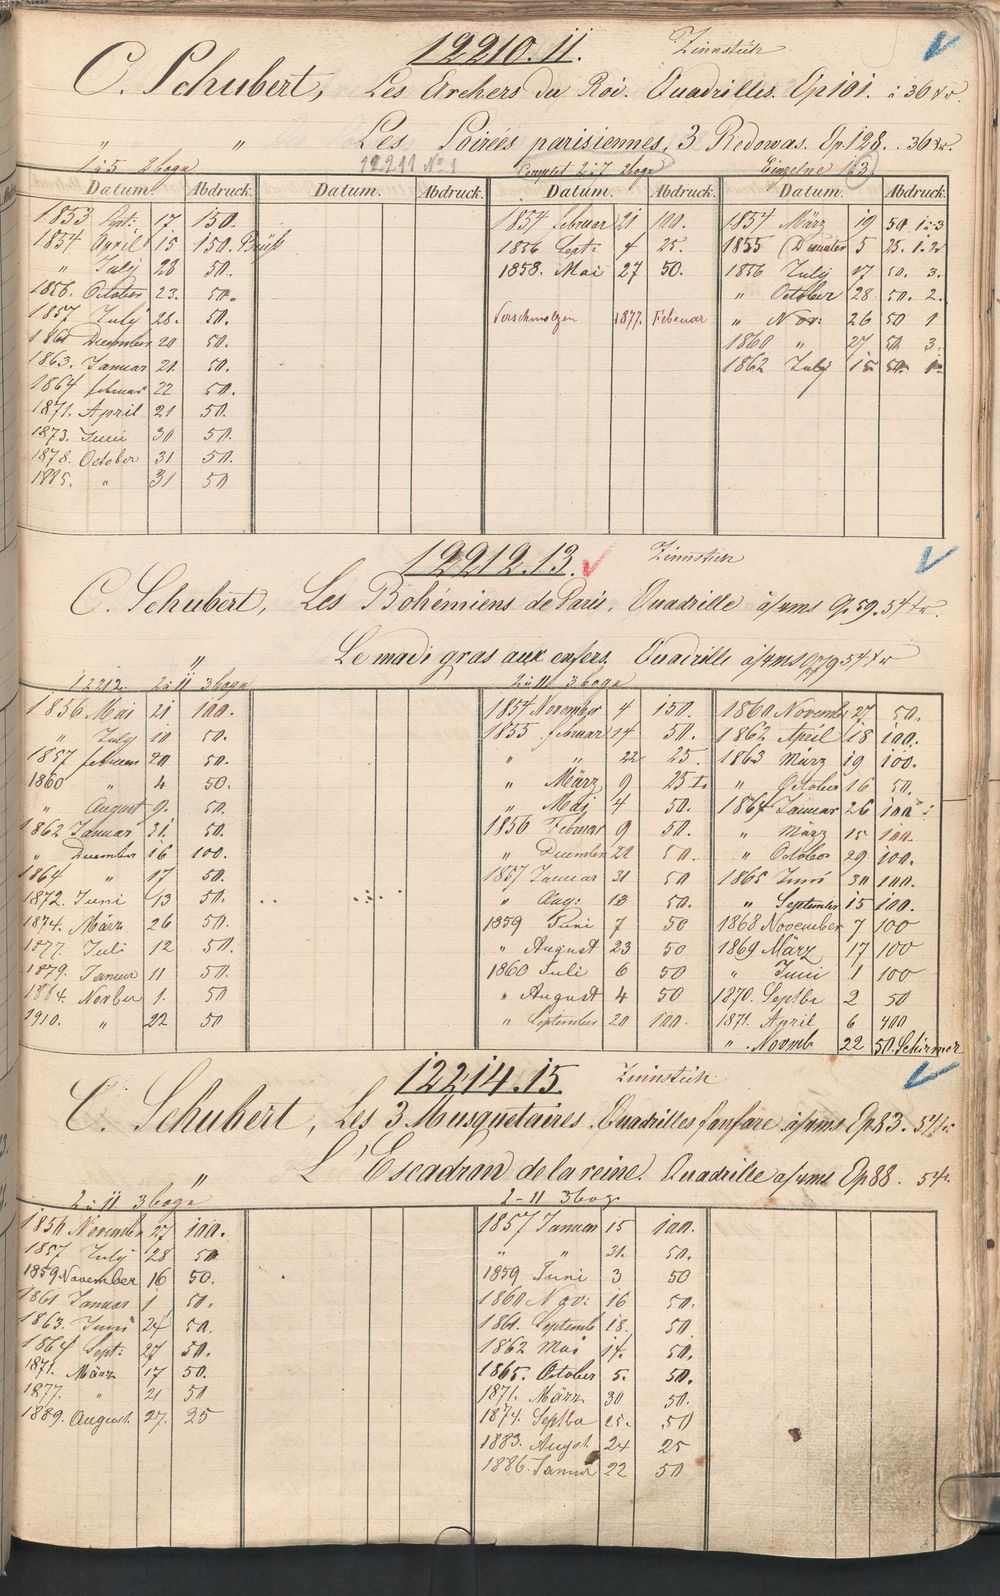 12210.11. Zinnstich
C. Schubert, Les Archers du Roi. Quadrilles. Op 101. à 36 xr.
" " Les Soirées parisiennes, 3 Redowas. Op. 128. 36 xr.
1 à 5 2 bogn 12211 No 1 Complet 2 à 7 2 bogn Einzelne 1 3
Datum. Abdruck. Datum. Abdruck. Datum. Abdruck. Datum. Abdruck.
1853 Spt: 17 150.
1854 April 15 150.
" July 28 50.
1856. October 23. 50.
1857 July 28. 50.
December 20 50.
1863. Januar 20 50.
1864 februar 22 50.
1871. April 21 50.
1873. Juni 30 50.
1878. October 31 50.
1885. " 31 50
1854 februar 21 100.
1856 Sept: 4 25.
1858. Mai 27 50.
Verschmolzen 1877. Februar
1854 März 19 50 1-3
1855 December 5 25. 1.2.
1856 July 17 50. 3.
" October 28 50. 2.
" Nov: 26 50 1
1860 " 27 50 3.
1862 July 15 50. 1.
12212.13. Zinnstich
C. Schubert, Les Bohémiens de Paris. Quadrille à/4ms Op. 59. 54 xr.
" Le madi gras aux enfers. Quadrille à/4ms Op 79 54 xr
12212. 2 à 11 3 bogn 2 à 11 3 bogn
1856 Mai 21 100.
" July 10 50.
1857 februar 20 50.
1860 " 4 50.
" August 9. 50.
1862 Januar 31. 50.
" December 16 100.
1864 " 17 50.
1872. Juni 13 50.
1874. März 26 50.
1877. Juli 12 50.
1879. Januar 11 50.
1884. Novber 1. 50
1910. " 22 50
1854 November 4 150.
1855 februar 14 50.
" " 22 25
" März 9 25
" Mai 4 50.
1856 Februar 9 50.
" December 22 50.
1857 Januar 31 50
" Aug: 13 50.
1859 Juni 7 50
" August 23 50
1860 Juli 6 50
" August 4 50
" September 20 100.
1860 November 27 50.
1862 April 18 100.
1863 März 19 100.
" October 16 50.
1864 Januar 26 100
" März 15 100.
" October 29 100.
1865 Juni 30 100.
" September 15 100.
1868 November 7 100
1869 März 17 100
" Juni 1 100
1870. Septbr 2 50
1871. April 6 400
" Novmb 22 50. Schirmer
12214.15. Zinnstich
C. Schubert, Les 3 Musquetaires. Quadrilles fanfare à/4ms Op 83. 54 xr
" L'Escadron de la reine. Quadrille à/4ms Op 88. 54 xr
2 à 11 3 bogn 2-11 3 bog
1856 November 27 100.
1857 July 28 50
1859 November 16 50.
1861 Januar 1 50.
1863. Juni 24 50.
1864 Sept: 27 50.
1871. März 17 50.
1877. " 21 50
1889. August. 27. 25
1857 Januar 15 100.
" " 31. 50.
1859 Juni 3 50
1860 Nov: 16 50.
1861. Septemb 18. 50
1862 Mai 14. 50.
1865. October 5. 50.
1871. März 30 50.
1874. Septbr 25. 50
1883. Augst. 24 25
1886. Januar 22 50